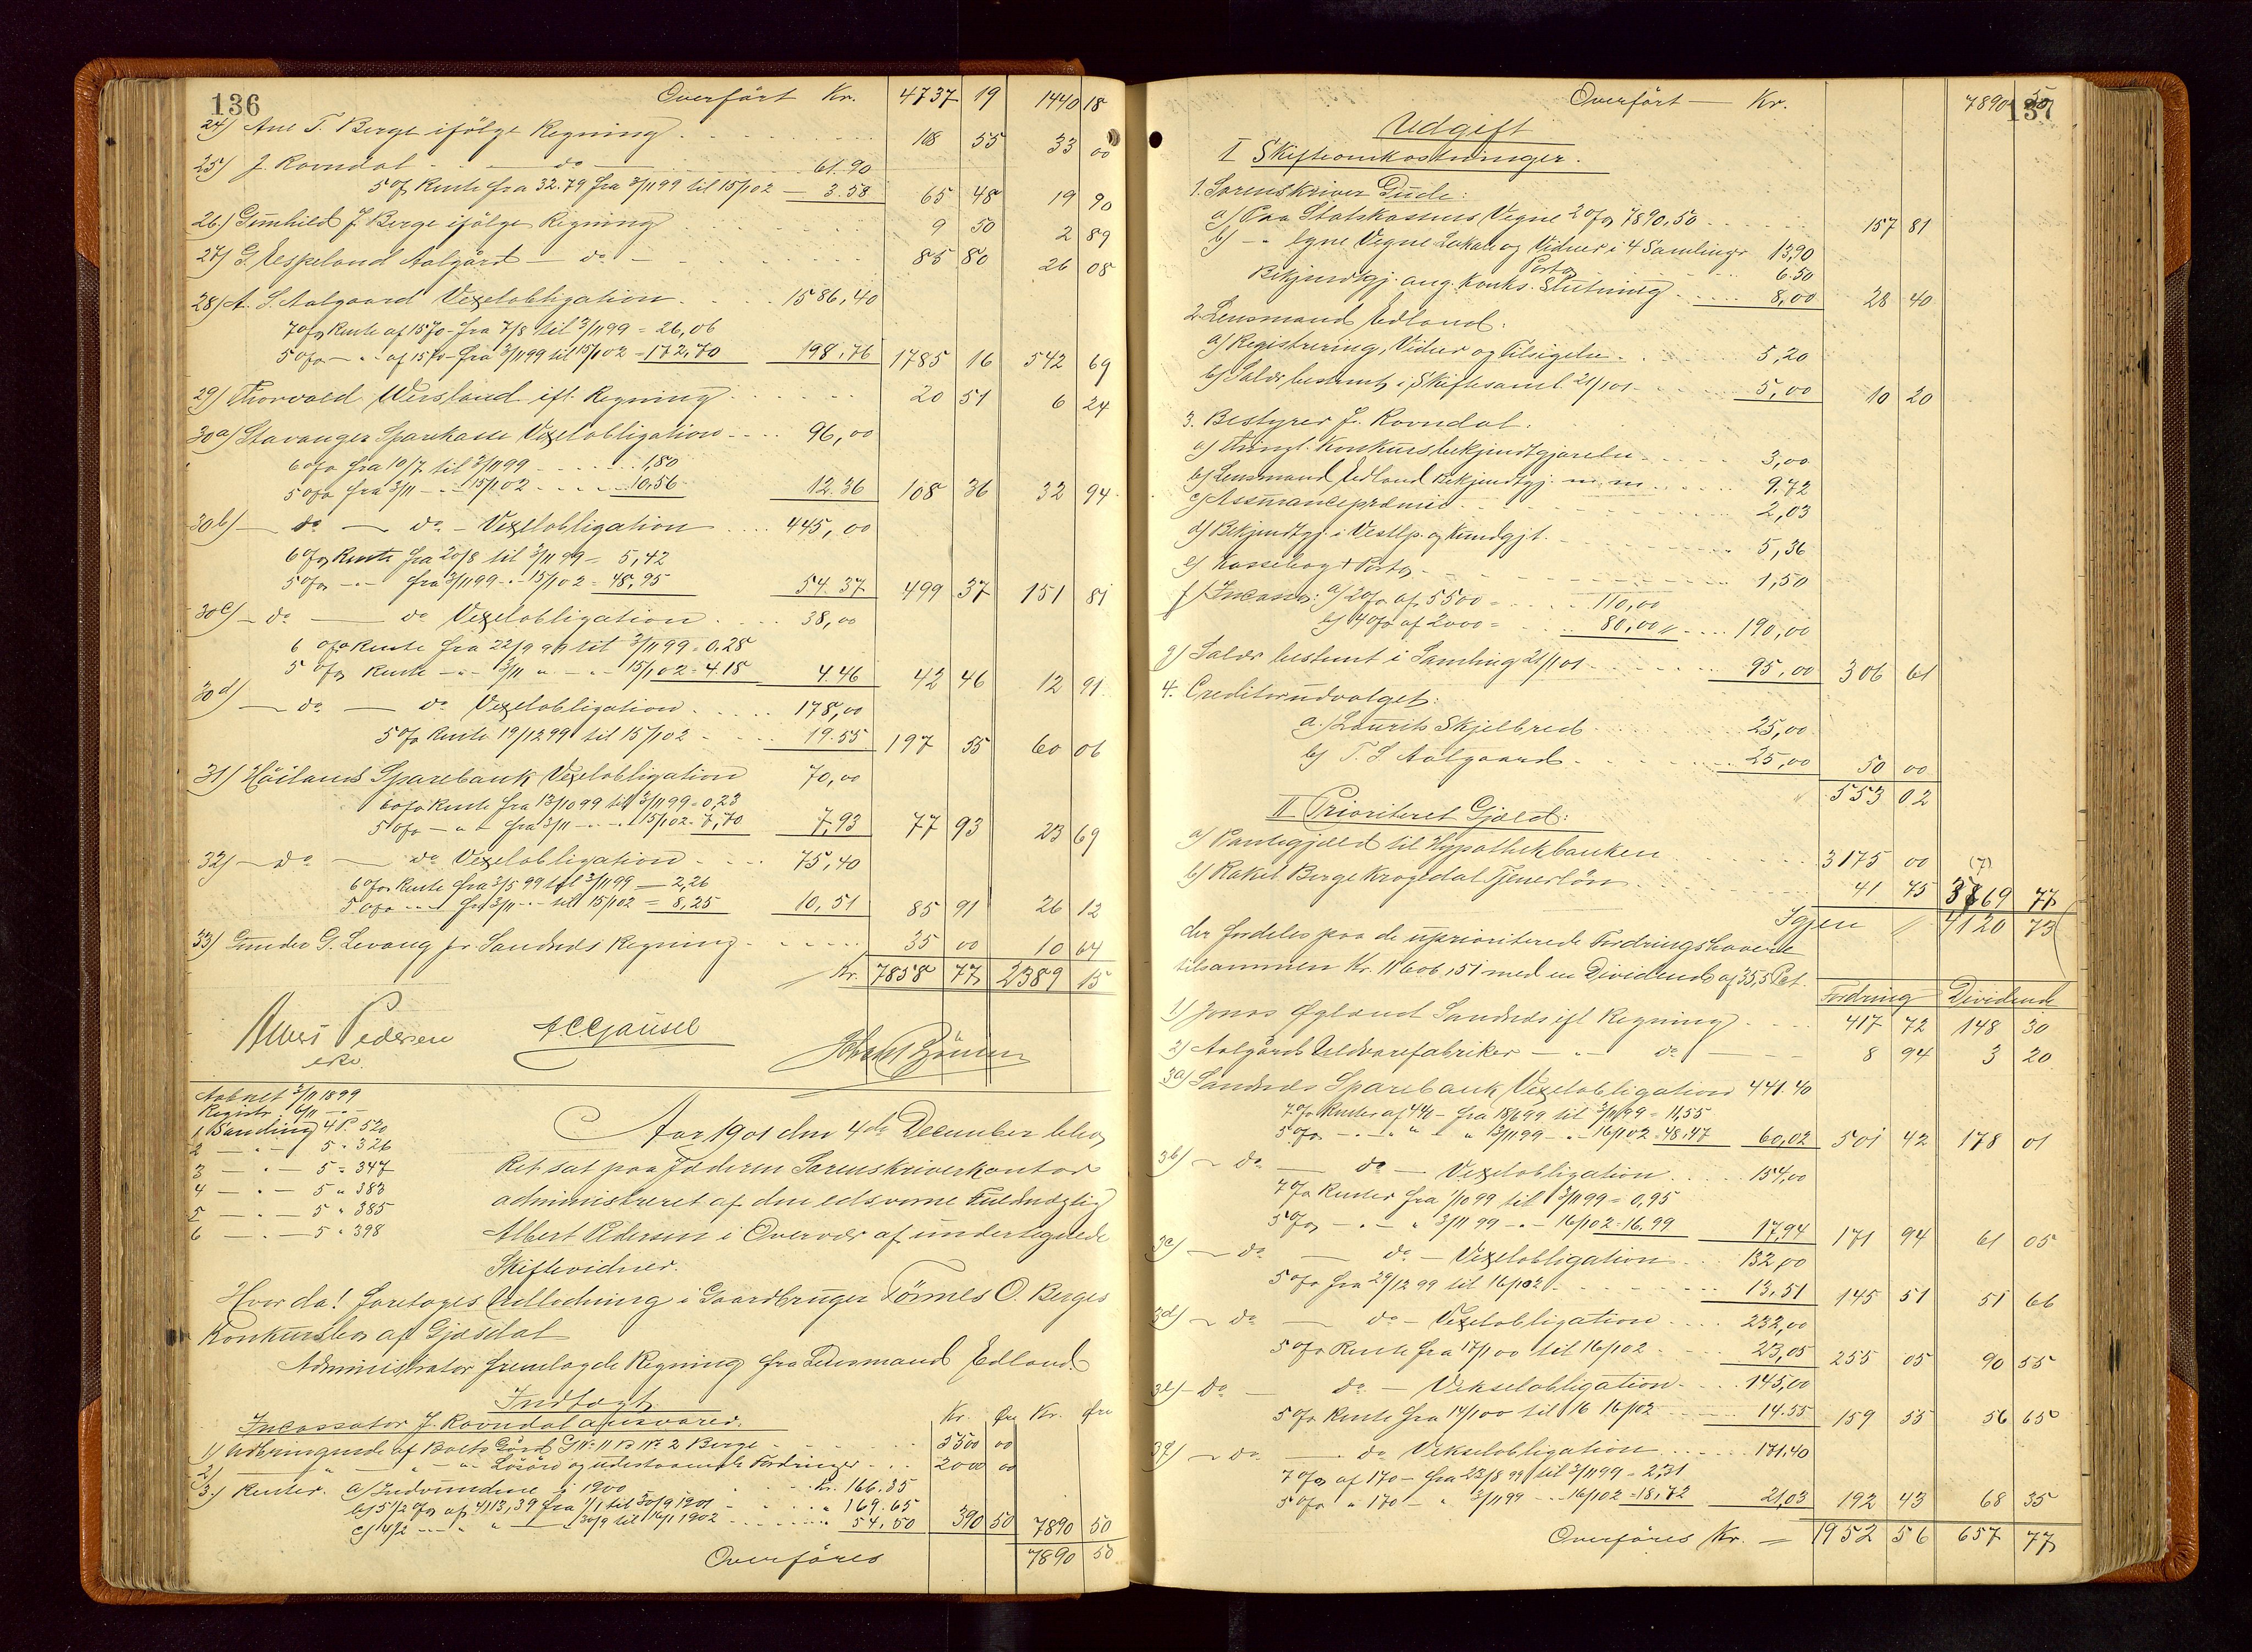 136
Overført Kr. 4737 19 1440 18
24) Ane T. Berge ifölge Regning 108 55 33 00
25) J. Ravndal - do - 61.90
5 % Rente fra 32.79 fra 3/11 99 til 15/1 02 - 3.58 65 48 19 90
26.) Gunhild J. Berge ifölge Regning 9 50 2 89
27) G. Espeland Aalgård - do - 85 80 26 08
28) A. S. Aalgaard Vexelobligation 1586,40
7 % Rente af 1570 - fra 7/8 til 3/11 99 = 26,06
5 % - " - af 1570 - fra 3/11 99 til 15/1 02 = 172,70 198,76 1785 16 542 69
29) Thorvald Wersland ifl. Regning 20 51 6 24
30a) Stavanger Sparekasse Vexelobligation 96,00
6 % fra 10/7 til 3/11 99 1,80
5 % fra 3/11 - " - 15/1 02 10,56 12.36 108 36 32 94
30b) - do - do - Vexelobligation 445,00
6 % Rente fra 20/8 til 3/11 99 = 5,42
5 % - " - fra 3/11 99 - " - 15/1 02 = 48,95 54.37 499 37 151 81
30c) - do - do Vexelobligation 38,00
6 % Rente fra 22/9 99 til 3/11 99 = 0,28
5 % Rente - " - 3/11 " - " - 15/1 02 = 4.18 4.46 42 46 12 91
30d) - do - do Vexelobligation 178,00
5 % Rente 19/12 99 til 15/1 02 - 19.55 197 55 60 06
31) Höilands Sparebank Vexelobligation 70,00
6 % Rente fra 13/10 99 til 3/11 99 = 0,23
5 % - " - fra 3/11 - " - 15/1 02 = 7,70 7,93 77 93 23 69
32) - do - do Vexelobligation 75,40
6 % Rente fra 3/5 99 til 3/11 99 = 2,26
5 % - " - fra 3/11 - " - til 15/1 02 = 8,25 10,51 85 91 26 12
33) Gunder G. Levang pr. Sandnes Regning 35 00 10 64
Kr. 7858 77 2389 15
Albert Pedersen A C Gausel
cst.
Aabnet 3/11 1899
Registr. 6/11 - " -
1 Samling 4 P. 520
2 - " - 5 " 326
3 - " - 5 " 347
4 - " - 5 " 383
5 - " - 5 " 385
6 - " - 5 " 398
Aar 1901 den 4de December blev
Ret sat paa Jæderen Sorenskriverkontor
administreret af den edsvorne Fuldmægtig
Albert Pedersen i Overvær af undertegnede
Skiftevidner.
Hvor da! foretoges Udlodning i Gaardbruger Tönnes O. Berges
Konkursbo af Gjæsdal
Administrator fremlagde Regning fra Lensmand Edland
Indtægt.
Incassator J. Ravndal ansvarer. Kr. Øre Kr. Øre
1) Udbringende af Boets Gård G. Nr. 11 B. Nr. 2 Berge 5500 00
2) - " - " - Lösöre og udestaaende Fordringer 2000 00
3.) Renter. a) Indvundne i 1900 Kr. 166.35
b) 5 1/2 % af 4113,39 fra 1/1 til 30/9 1901 - " 169.65
c) 4 1/2 - " - " - 30/9 til 16/1 1902 " 54,50 390 50 7890 50
Overföres 7890 50
137
Overført - Kr. 7890 50
Udgift
I Skifteomkostninger.
1. Sorenskriver Gude:
a) Paa Statskassens Vegne 2 % 7890,50 157 81
b) - " egne Vegne Lokale og Vidner i 4 Samlinger 13,90
Porto 6.50
Bekjendtgj. ang. Konks. Slutning 8,00 28 40
2. Lensmand Edland:
a) Registrering, Vidner og Tilsigelse 5,20
b) Salær bestemt i Skiftesaml. 21/1 01 5,00 10 20
3. Bestyrer J. Ravndal.
a) Thingl. Konkursbekjendtgjørelse 3,00
b) Lensmand Edland Bekjendtgj. m. m. 9,72
c) Assurancepræmie 2,03
d) Bekjendtgj. i Vestlp. og Kundgjt. 5,36
e) Kassebog & Porto 1,50
f) Incasso: a) 2 % af 5500 = 110,00
b) 4 % af 2000 = 80,00 190,00
g) Salær bestemt i Samling 21/1 01 95,00 306 61
4. Creditorudvalget:
a.) Laurits Skjelbred 25,00
b) T. S. Aalgaard 25,00 50 00
553 02
II Prioriteret Gjæld:
a) Pantegjæld til Hypothekbanken 3175 00 (7)
b) Rakel Berge Krogedal Tjenerlön 41 75 3769 77
Igjen 4120 73
der fordeles paa de uprioriterede Fordringshavere
tilsammen Kr. 11606,51 med en Dividende af 35,5 Pct.
Fordring Dividende
1) Jonas Øgland Sandnes ifl. Regning 417 72 148 30
2) Aalgårds Uldvarefabriker - " - do - 8 94 3 20
3a) Sandnes Sparebank Vexelobligation 441.40
7 % Renter af 440 - fra 18/6 99 til 3/11 99 = 11,55
5 % - " - " - " 3/11 99 - " - 16/1 02 = 48,47 60,02 501 42 178 01
3b) - do - do - Vexelobligation 154,00
7 % Renter fra 1/10 99 til 3/11 99 = 0,95
5 % - " - " 3/11 99 - " - 16/1 02 = 16,99 17,94 171 94 61 05
3c) - do - do - Vexelobligation 132,00
5 % fra 29/12 99 til 16/1 02 13,51 145 51 51 66
3d) - do - do - Vexelobligation 232,00
5 % Rente fra 17/1 00 til 16/1 02 23,05 255 05 90 55
3e) - do - do - Vekselobligation 145,00
5 % Rente fra 14/1 00 til 16 16/1 02 14.55 159 55 56 65
3f) - do - do Vekselobligation 171.40
7 % af 170 - fra 23/8 99 til 3/11 99 = 2,31
5 % " 170 - " 3/11 99 - " - 16/1 02 = 18,72 21,03 192 43 68 35
Overföres Kr. = 1952 56 657 77